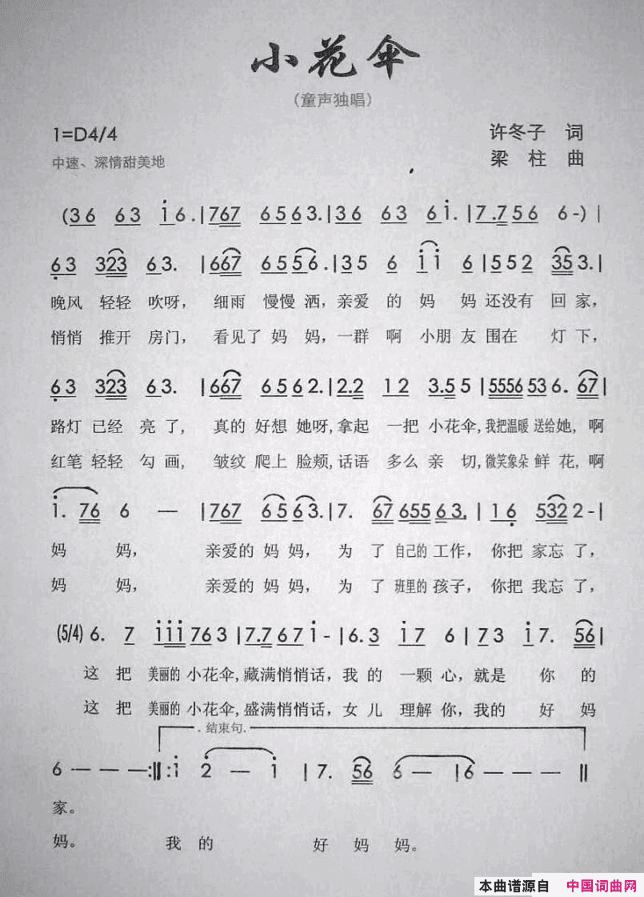 小花伞
（童声独唱）
1=D4/4 许冬子 词
中速、深情甜美地 梁柱 曲
(36 63 i6.|767 6563.|36 63 6i.|7.756 6-)|
63 323 63.|667 6556.|35 6 ii 6|552 353.|
晚风 轻轻 吹呀， 细雨 慢慢 洒，亲爱 的 妈 妈 还没有 回 家，
悄悄 推开 房门， 看见了 妈 妈，一群 啊 小朋 友 围在 灯 下，
63 323 63.|667 6562.|2.2 12 3.55|5556536. 67|
路灯 已经 亮了， 真的 好想 她呀，拿起 一把 小花伞，我把温暖 送给她，啊
红笔 轻轻 勾画， 皱纹 爬上 脸颊，话语 多么 亲 切，微笑象朵 鲜花，啊
i. 76 6 —|767 6563.|7. 67 655 63.|16 5322-|
妈 妈， 亲爱的 妈 妈， 为 了 自己的 工作， 你把 家忘了，
妈 妈， 亲爱的 妈 妈， 为 了 班里的 孩子， 你把 我忘了，
(5/4) 6. 7 iii 763|7.767i-|6.3 i7 6|73 i7. 56|
这 把 美丽的 小花伞，藏满悄悄话，我的 一颗 心，就是 你 的
这 把 美丽的 小花伞，盛满悄悄话，女儿 理解 你，我的 好 妈
.结束句.
6 — — —:‖:i 2 — i|7. 56 6 —|6 — — —‖
家。
妈。 我的 好 妈妈。
本曲谱源自 中国词曲网